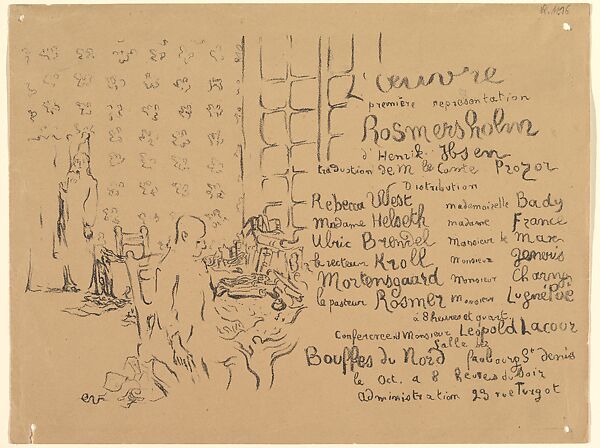 L'œuvre
première representation
Rosmersholm
d'Henrik Ibsen
traduction de M. le Comte Prozor
Distribution
Rebecca West mademoiselle Bady
Madame Helseth madame France
Ulric Brendel Monsieur
le recteur Kroll Monsieur
Mortensgaard Monsieur Charny
le pasteur Rosmer Monsieur Lugné Poe
à 8 heures et quart
Conference de Monsieur Léopold Lacour
Salle des
Bouffes du Nord faubourg St Denis
le Oct. à 8 heures du soir
administration 23 rue Turgot
ev